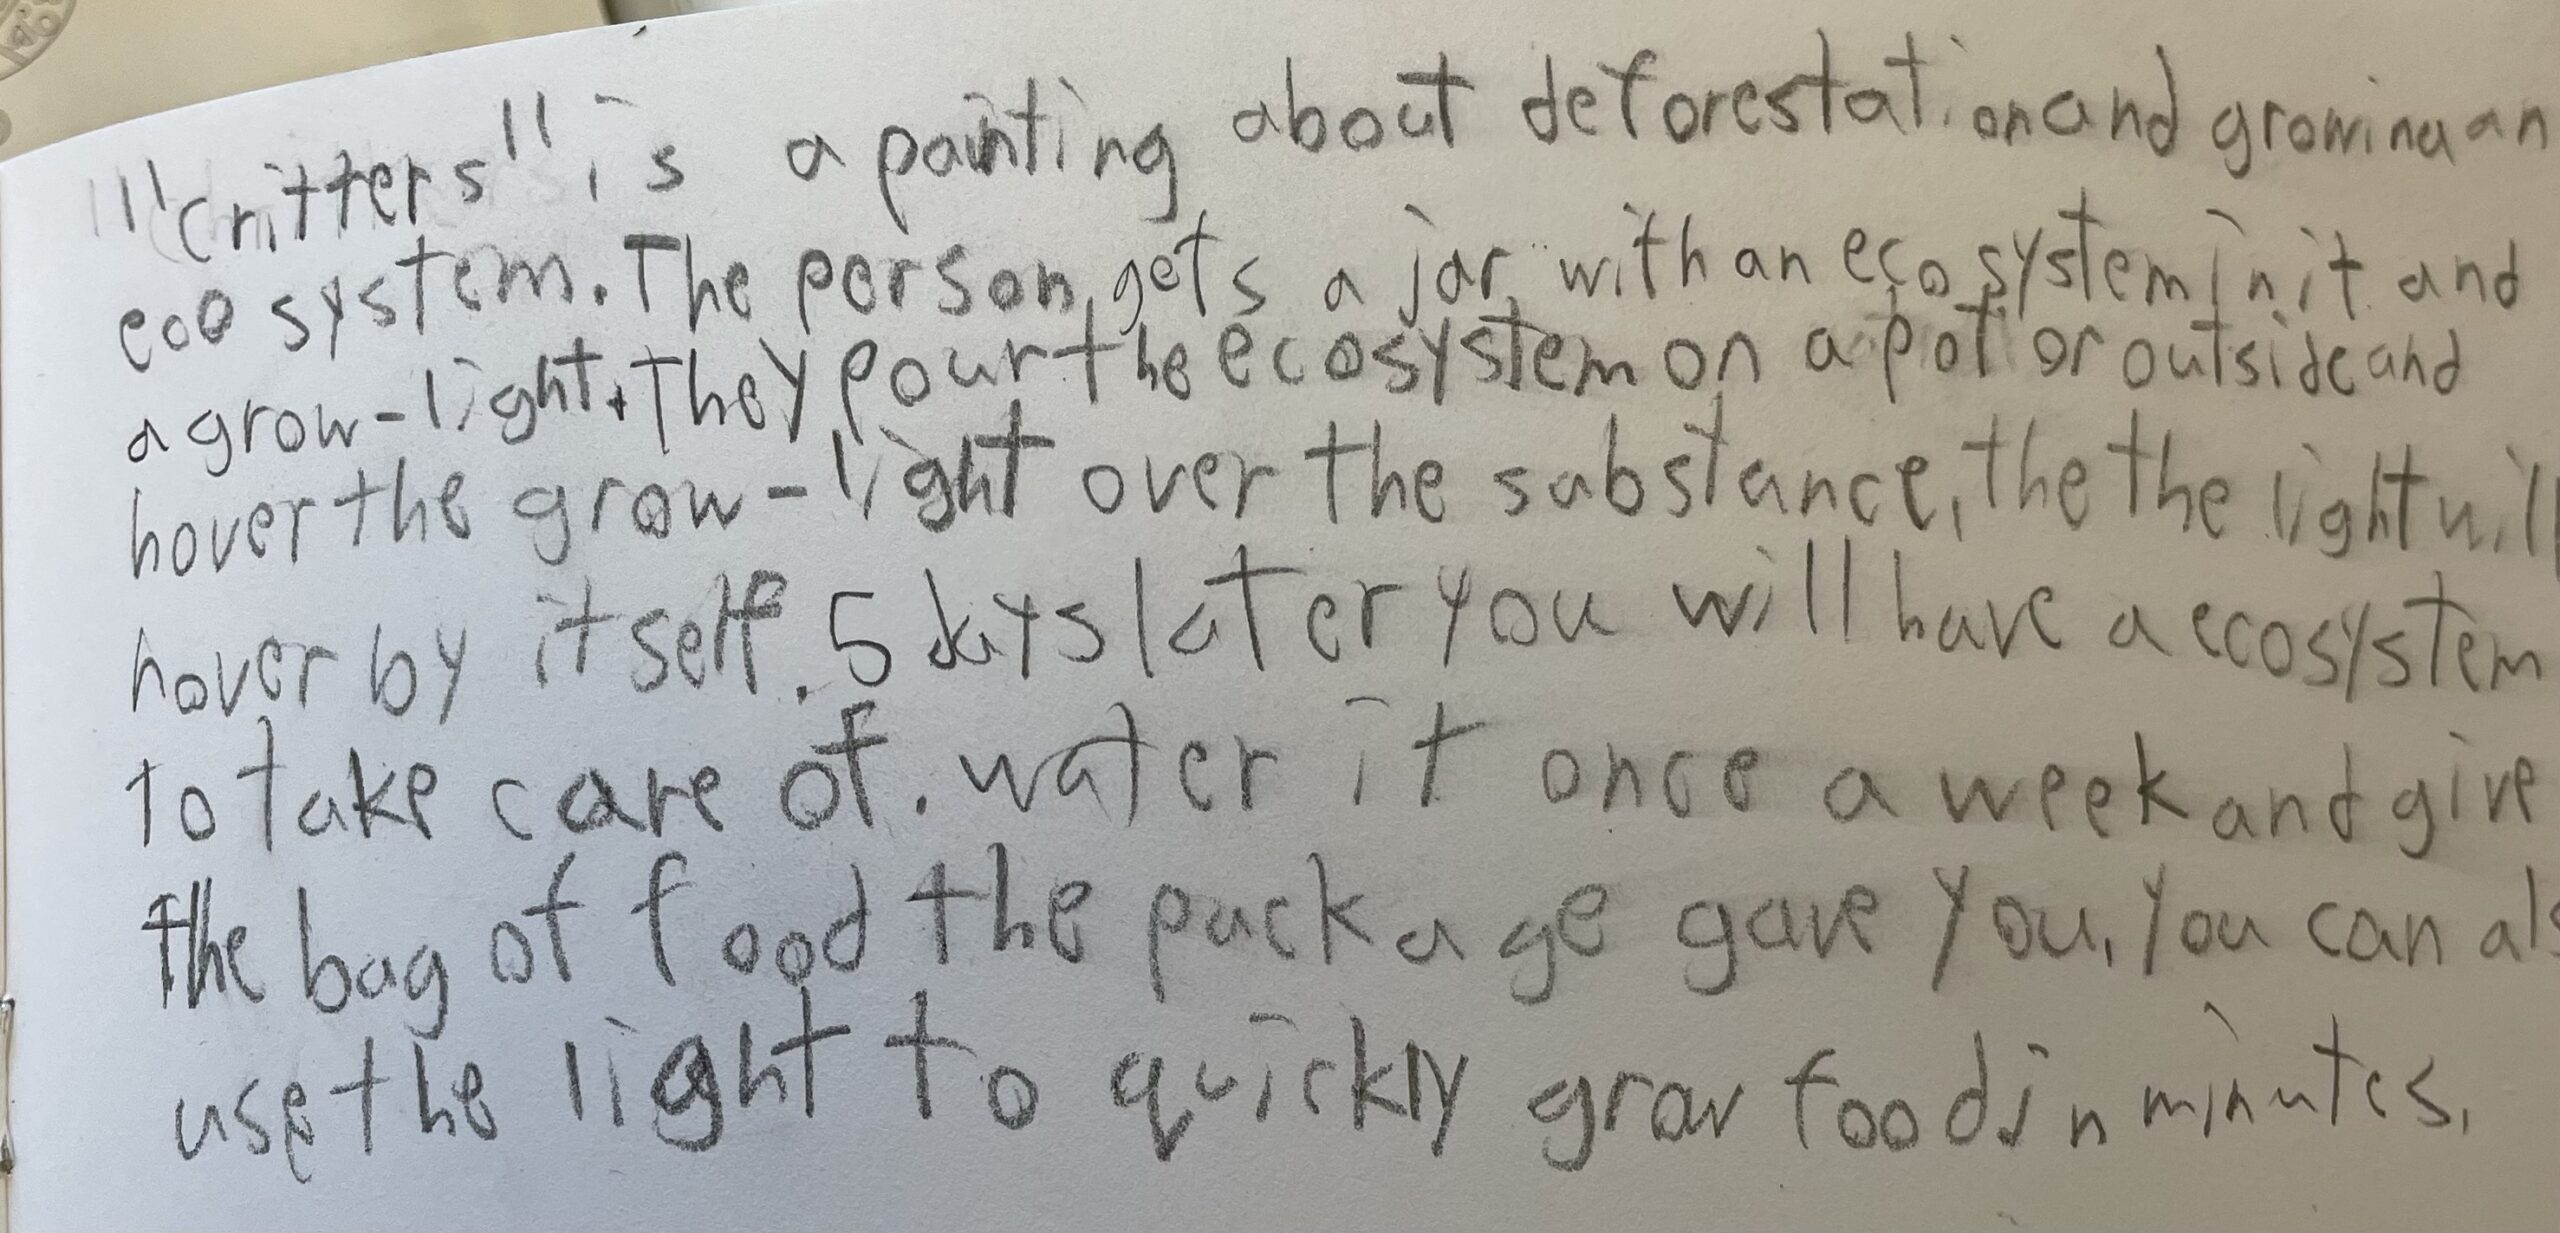 "Critters" is a painting about deforestation and growing an
eco system. The person gets a jar with an ecosystem in it and
a grow-light. They pour the ecosystem on a pot or outside and
hover the grow-light over the substance, the the light will
hover by itself. 5 days later you will have a ecosystem
to take care of. water it once a week and give
the bag of food the package gave you. You can als
use the light to quickly grow food in minutes.